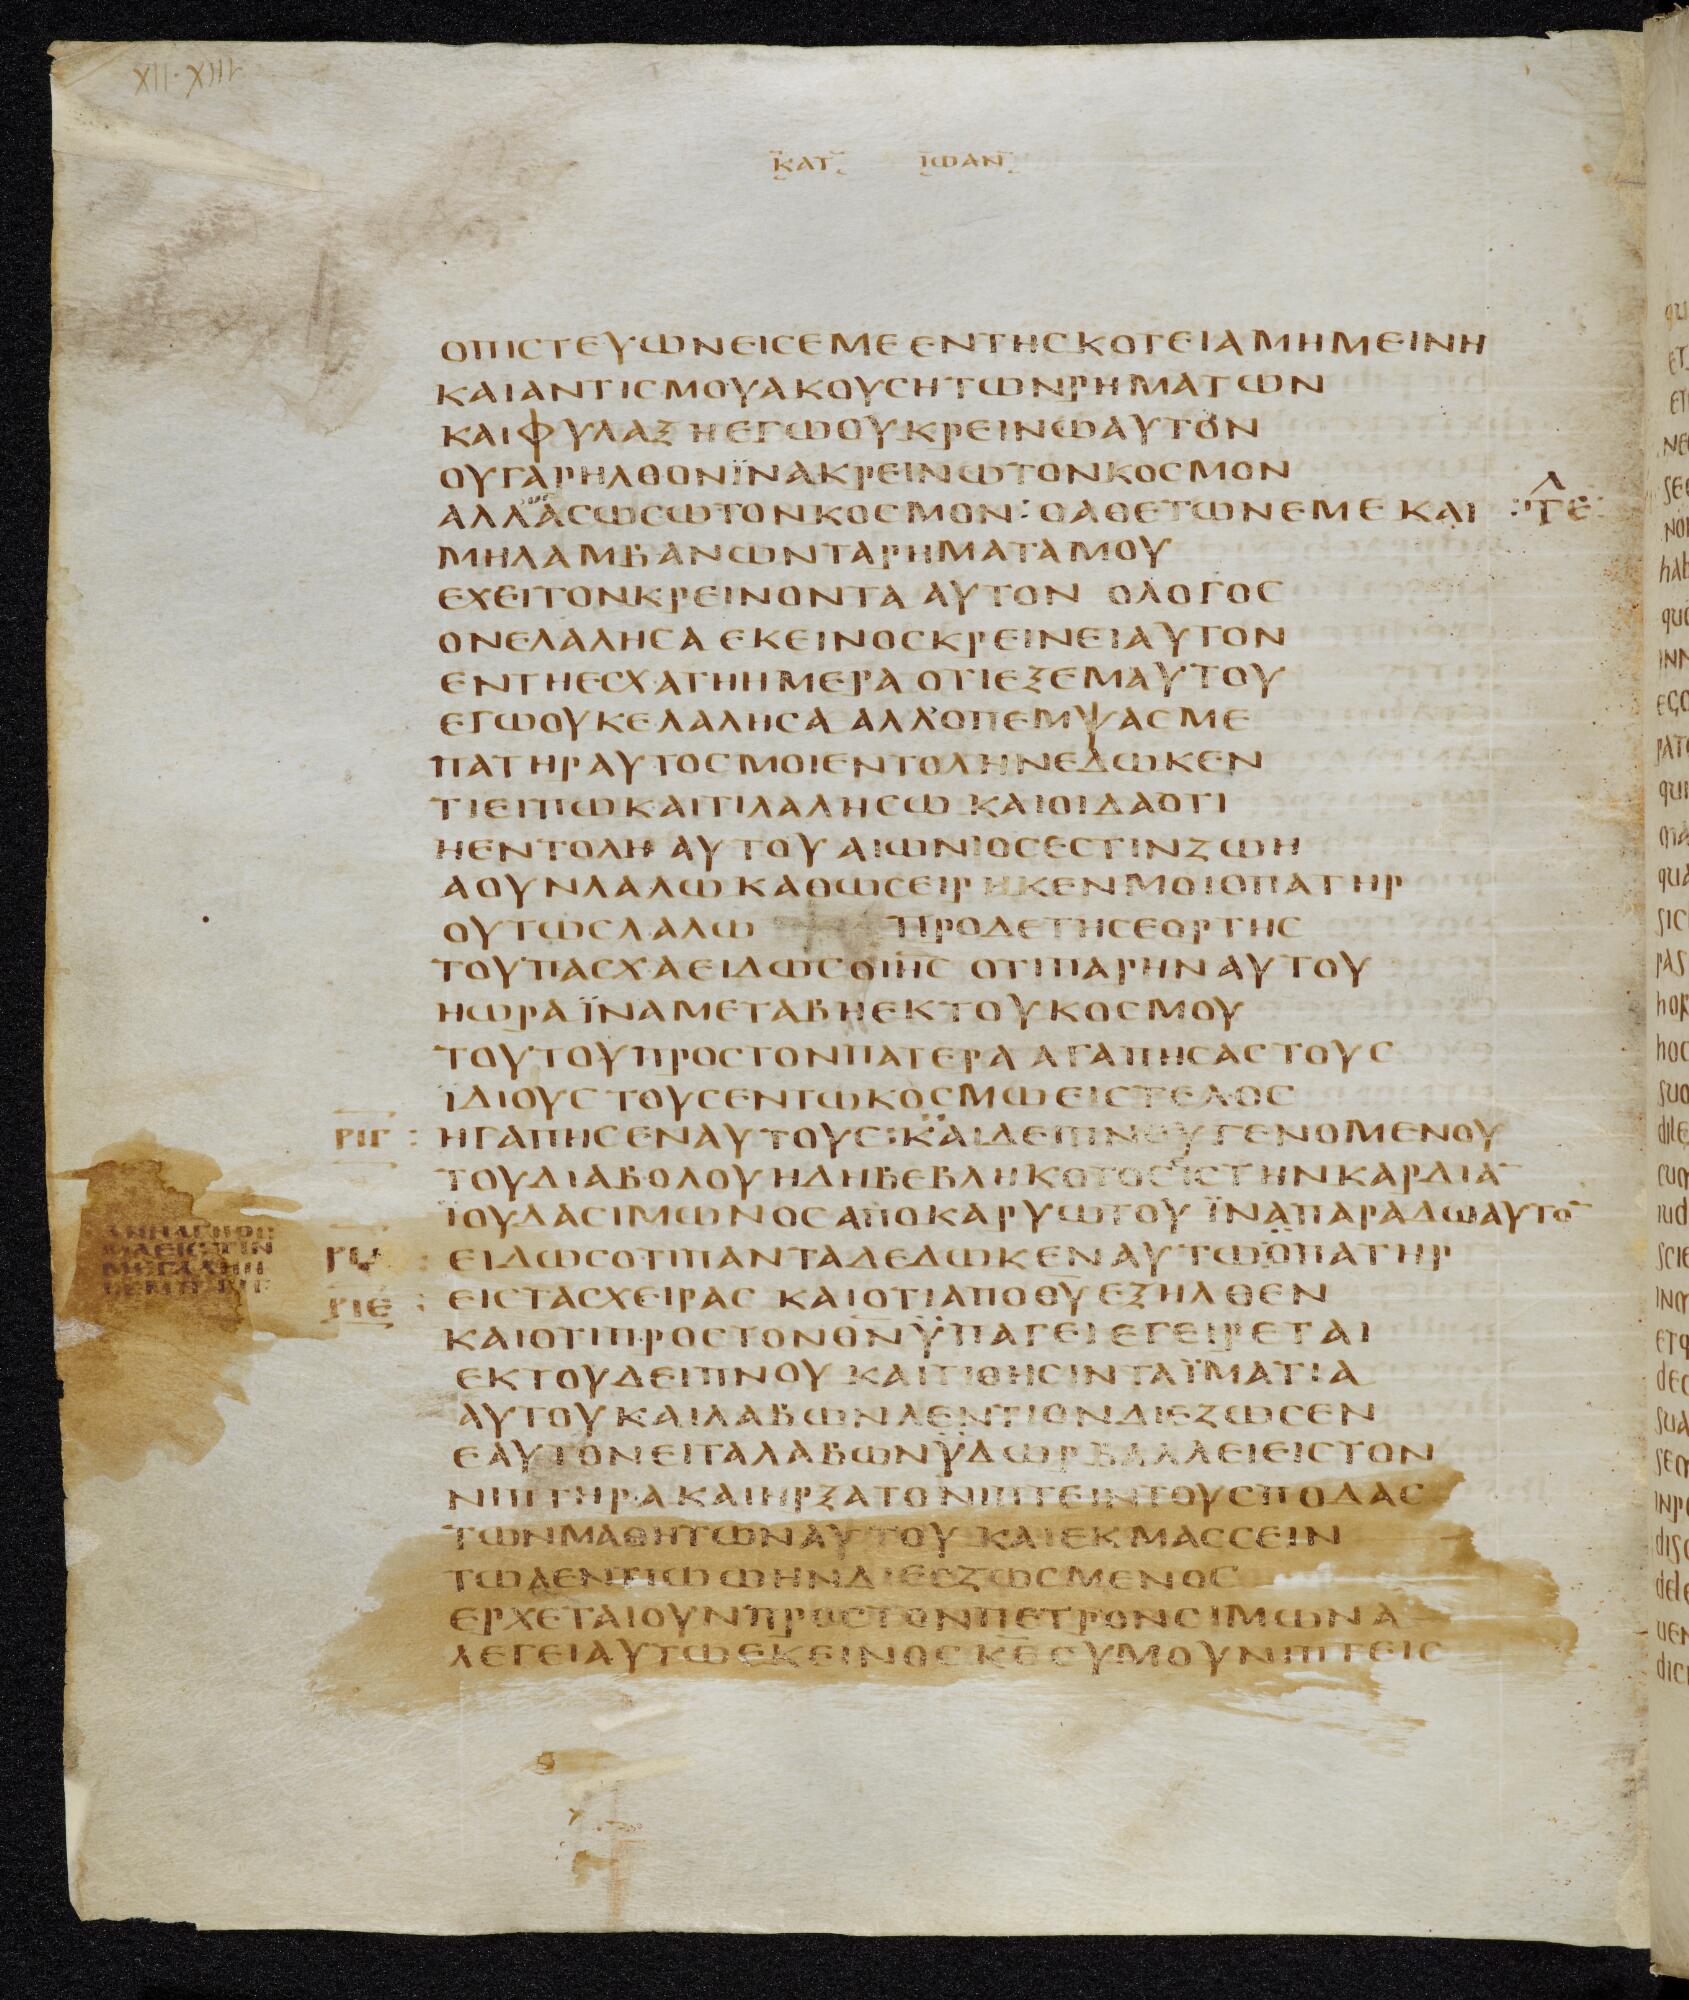 XII·XIII
ΚΑΤ ΙΩΑΝ
ΟΠΙΣΤΕΥΩΝΕΙΣΕΜΕΕΝΤΗΣΚΟΤΕΙΑΜΗΜΕΙΝΗ
ΚΑΙΑΝΤΙΣΜΟΥΑΚΟΥΣΗΤΩΝΡΗΜΑΤΩΝ
ΚΑΙΦΥΛΑΞΗΕΓΩΟΥΚΡΕΙΝΩΑΥΤΟΝ
ΟΥΓΑΡΗΛΘΟΝΪΝΑΚΡΕΙΝΩΤΟΝΚΟΣΜΟΝ
ΑΛΛΑΣΩΣΩΤΟΝΚΟΣΜΟΝ : ΟΑΘΕΤΩΝΕΜΕΚΑΙ
ΜΗΛΑΜΒΑΝΩΝΤΑΡΗΜΑΤΑΜΟΥ
ΕΧΕΙΤΟΝΚΡΕΙΝΟΝΤΑ ΑΥΤΟΝ ΟΛΟΓΟΣ
ΟΝΕΛΑΛΗΣΑ ΕΚΕΙΝΟΣΚΡΕΙΝΕΙΑΥΤΟΝ
ΕΝΤΗΕΣΧΑΤΗΗΜΕΡΑ ΟΤΙΕΞΕΜΑΥΤΟΥ
ΕΓΩΟΥΚΕΛΑΛΗΣΑ ΑΛΛ'ΟΠΕΜΨΑΣΜΕ
ΠΑΤΗΡΑΥΤΟΣΜΟΙΕΝΤΟΛΗΝΕΔΩΚΕΝ
ΤΙΕΙΠΩΚΑΙΤΙΛΑΛΗΣΩ ΚΑΙΟΙΔΑΟΤΙ
ΗΕΝΤΟΛΗ ΑΥΤΟΥΑΙΩΝΙΟΣΕΣΤΙΝΖΩΗ
ΑΟΥΝΛΑΛΩΚΑΘΩΣΕΙΡΗΚΕΝΜΟΙΟΠΑΤΗΡ
ΟΥΤΩΣΛΑΛΩ ΠΡΟΔΕΤΗΣΕΟΡΤΗΣ
ΤΟΥΠΑΣΧΑΕΙΔΩΣΟΙΗΣ ΟΤΙΠΑΡΗΝΑΥΤΟΥ
ΗΩΡΑΪΝΑΜΕΤΑΒΗΕΚΤΟΥΚΟΣΜΟΥ
ΤΟΥΤΟΥΠΡΟΣΤΟΝΠΑΤΕΡΑ ΑΓΑΠΗΣΑΣΤΟΥΣ
ΪΔΙΟΥΣΤΟΥΣΕΝΤΩΚΟΣΜΩΕΙΣΤΕΛΟΣ
ΡΙΓ : ΗΓΑΠΗΣΕΝΑΥΤΟΥΣ:ΚΑΙΔΕΙΠΝΟΥΓΕΝΟΜΕΝΟΥ
ΤΟΥΔΙΑΒΟΛΟΥΗΔΗΒΕΒΛΗΚΟΤΟΣΙΣΤΗΝΚΑΡΔΙΑ¯
ΪΟΥΔΑΣΙΜΩΝΟΣΑΠΟΚΑΡΥΩΤΟΥ ΪΝΑΠΑΡΑΔΩΑΥΤΟ¯
ΕΙΔΩΣΟΤΙΠΑΝΤΑΔΕΔΩΚΕΝΑΥΤΩΟΠΑΤΗΡ
ΡΙΕ : ΕΙΣΤΑΣΧΕΙΡΑΣ ΚΑΙΟΤΙΑΠΟΘΥΕΞΗΛΘΕΝ
ΚΑΙΟΤΙΠΡΟΣΤΟΝΘΝΫΠΑΓΕΙΕΓΕΙΡΕΤΑΙ
ΕΚΤΟΥΔΕΙΠΝΟΥ ΚΑΙΤΙΘΗΣΙΝΤΑΪΜΑΤΙΑ
ΑΥΤΟΥΚΑΙΛΑΒΩΝΛΕΝΤΙΟΝΔΙΕΖΩΣΕΝ
ΕΑΥΤΟΝΕΙΤΑΛΑΒΩΝΫΔΩΡΒΑΛΛΕΙΕΙΣΤΟΝ
ΝΙΠΤΗΡΑΚΑΙΗΡΞΑΤΟΝΙΠΤΕΙΝΤΟΥΣΠΟΔΑΣ
ΤΩΝΜΑΘΗΤΩΝΑΥΤΟΥ ΚΑΙΕΚΜΑΣΣΕΙΝ
ΤΩΛΕΝΤΙΩΩΗΝΔΙΕΟΖΩΣΜΕΝΟΣ
ΕΡΧΕΤΑΙΟΥΝΠΡΟΣΤΟΝΠΕΤΡΟΝΣΙΜΩΝΑ
ΛΕΓΕΙΑΥΤΩΕΚΕΙΝΟΣΚΕΣΥΜΟΥΝΙΠΤΕΙΣ